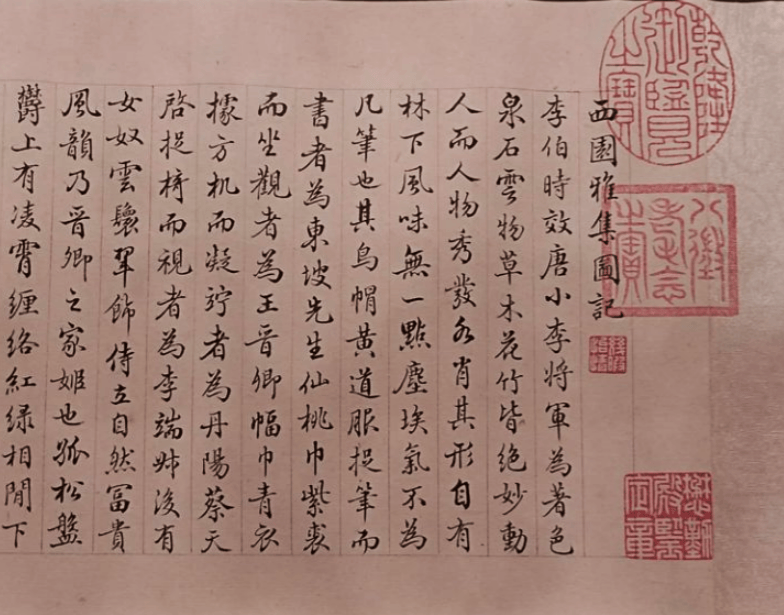 乾隆
御覽
之寶
八徵
耄念
之寶
懋勤
殿鑒
定章
西園雅集圖記
李伯時效唐小李將軍為著色
泉石雲物草木花竹皆絕妙動
人而人物秀發各肖其形自有
林下風味無一點塵埃氣不為
凡筆也其烏帽黃道服捉筆而
書者為東坡先生仙桃巾紫裘
而坐觀者為王晉卿幅巾青衣
據方机而凝竚者為丹陽蔡天
啓捉椅而視者為李端叔後有
女奴雲鬟翠飾侍立自然富貴
風韻乃晉卿之家姬也孤松盤
鬱上有凌霄纏絡紅綠相間下